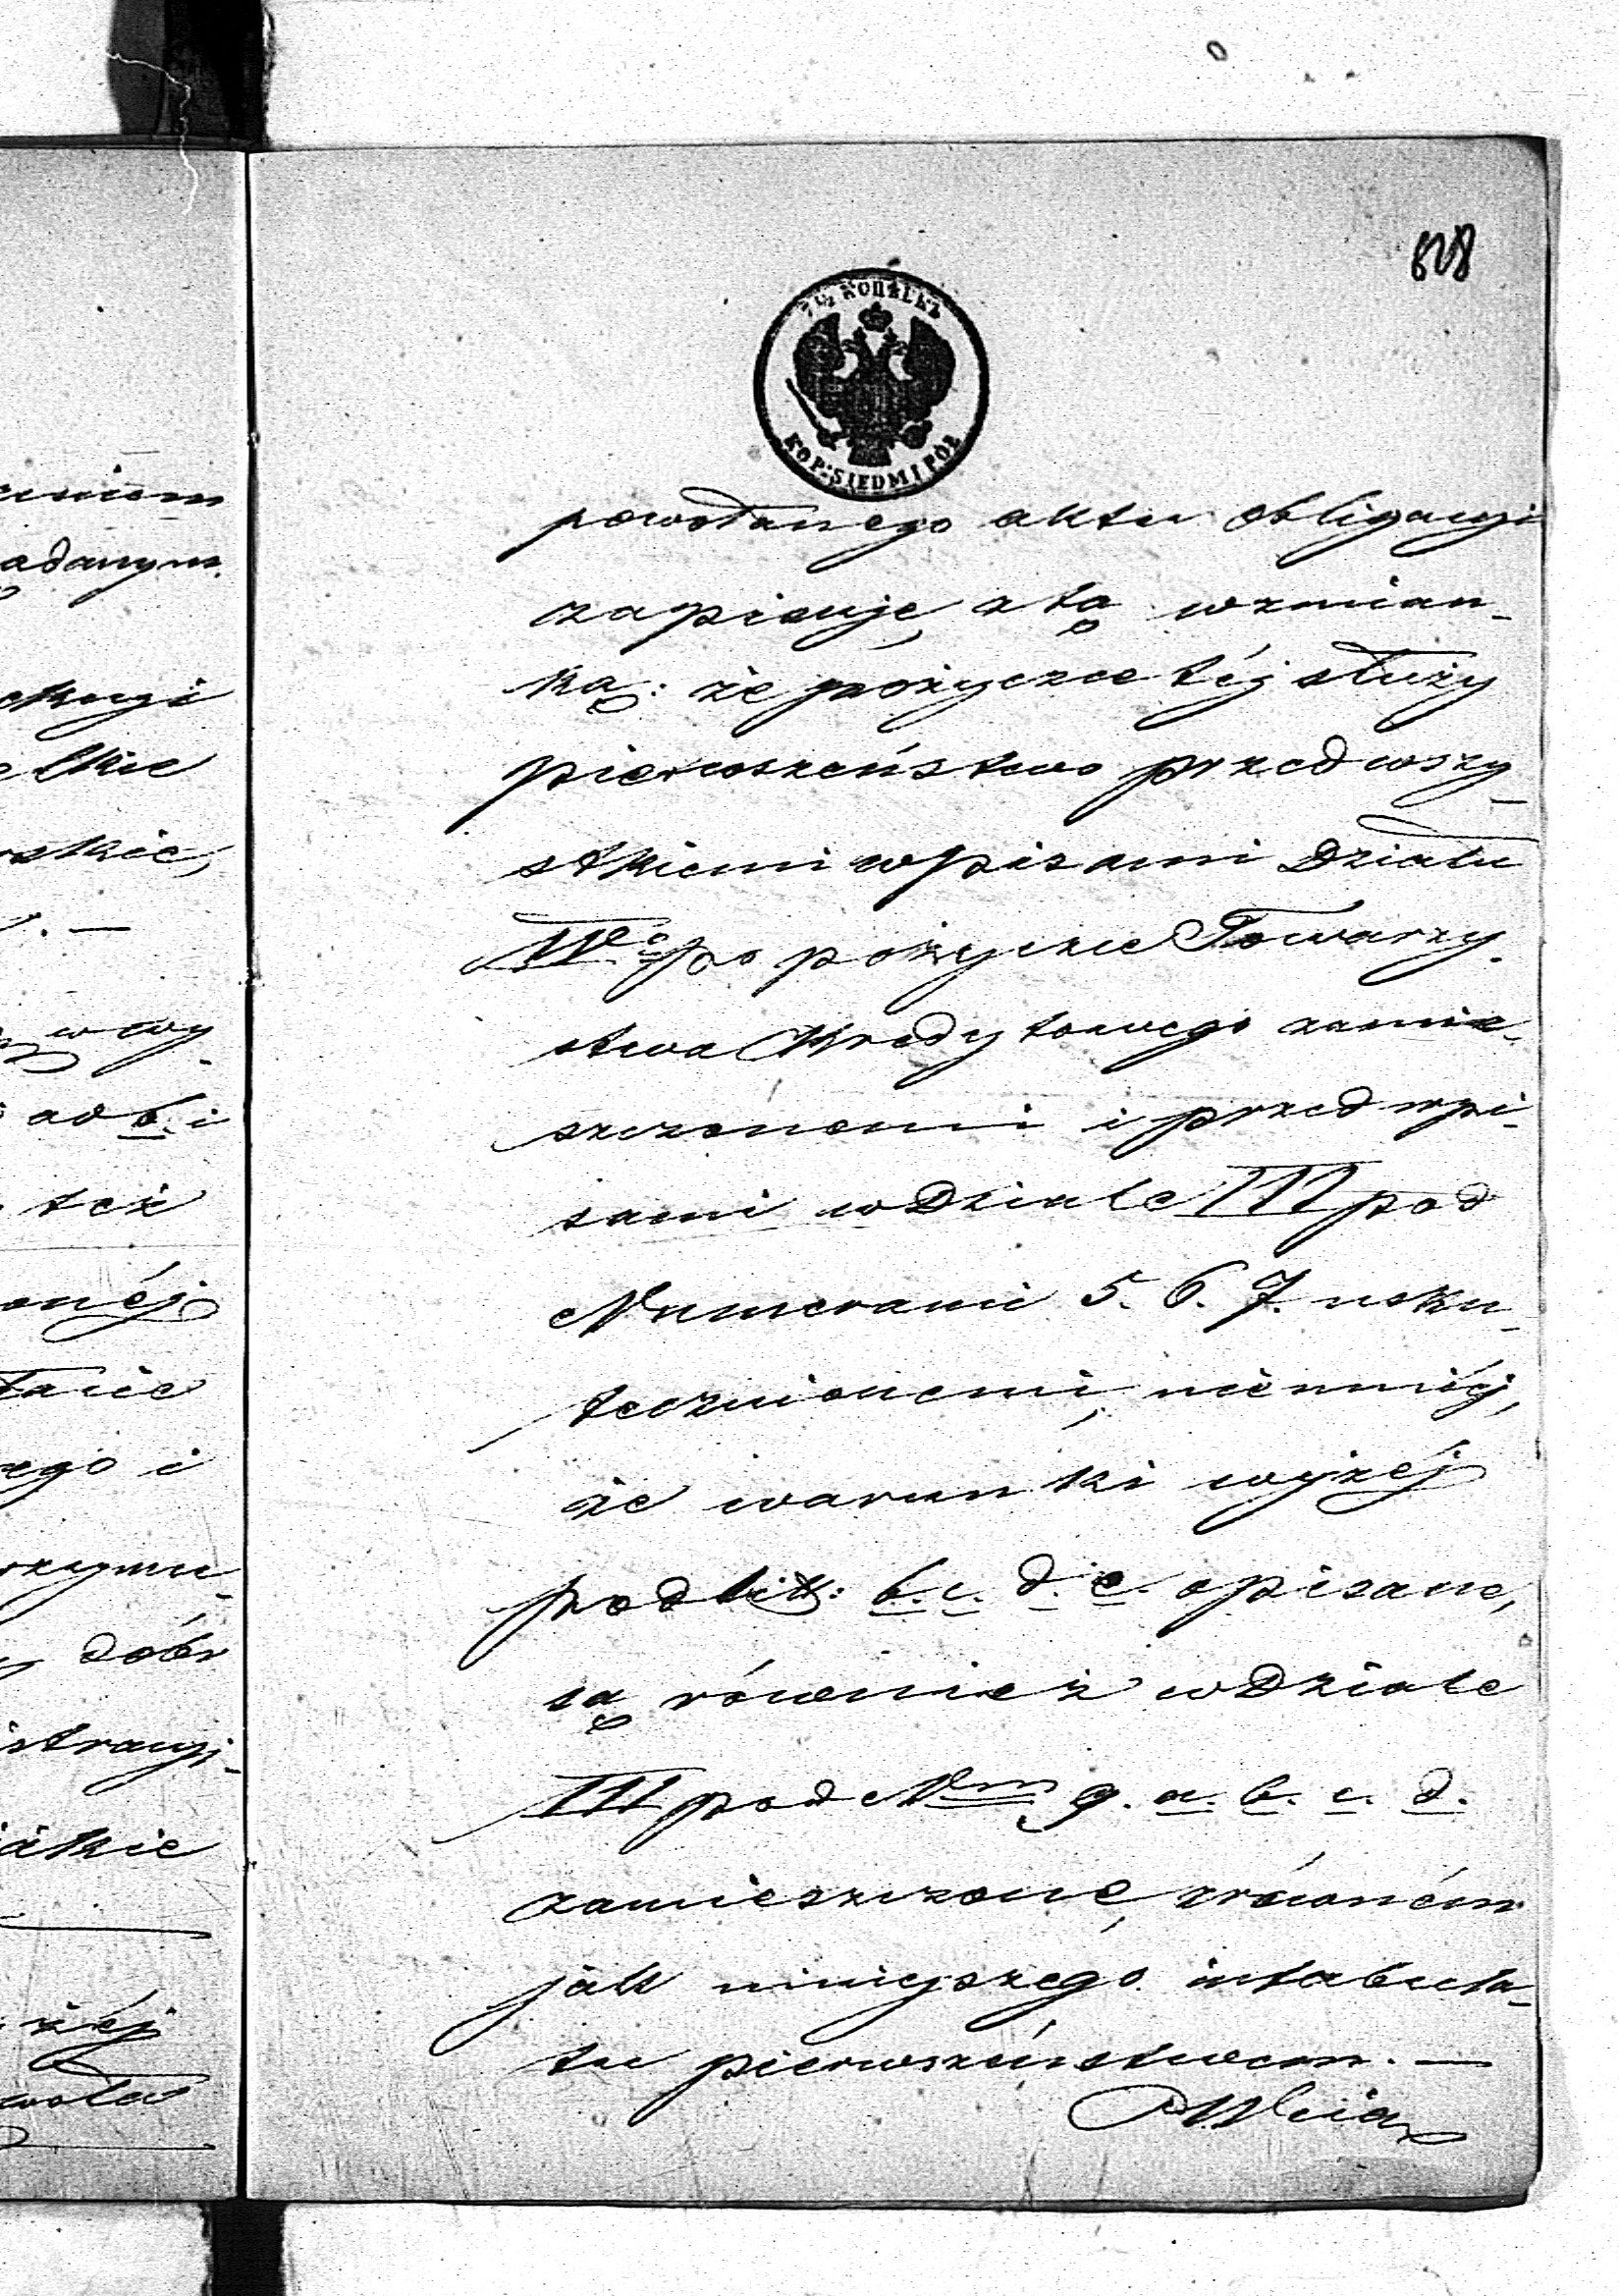 828
7½ КОПѢЕКЪ
KOP: SIEDM I PÓŁ
powołanego aktu obligacyi
zapisuje, z tą wzmian-
ką: że pożyczce téj służy
pierwszeństwo przed wszy-
stkiemi wpisami Działu
IVo po pożyczce Towarzy-
stwa Kredytowego zamie-
szczonemi i przed wpi-
sami w Dziale III pod
Numerami 5. 6. 7. usku-
tecznionemi, niemniéj,
że warunki wyżéj
pod lit: b. c. d. e. opisane,
są również w Dziale
III pod Nrm 9. a. b. c. d.
zamieszczone, z równém
jak niniejszego intabula-
tu pierwszeństwem. —
adanym
skie,
. —
w wy-
ad b. i
też
onéj
ego i
rzymu-
dóbr
istracyj-
akie